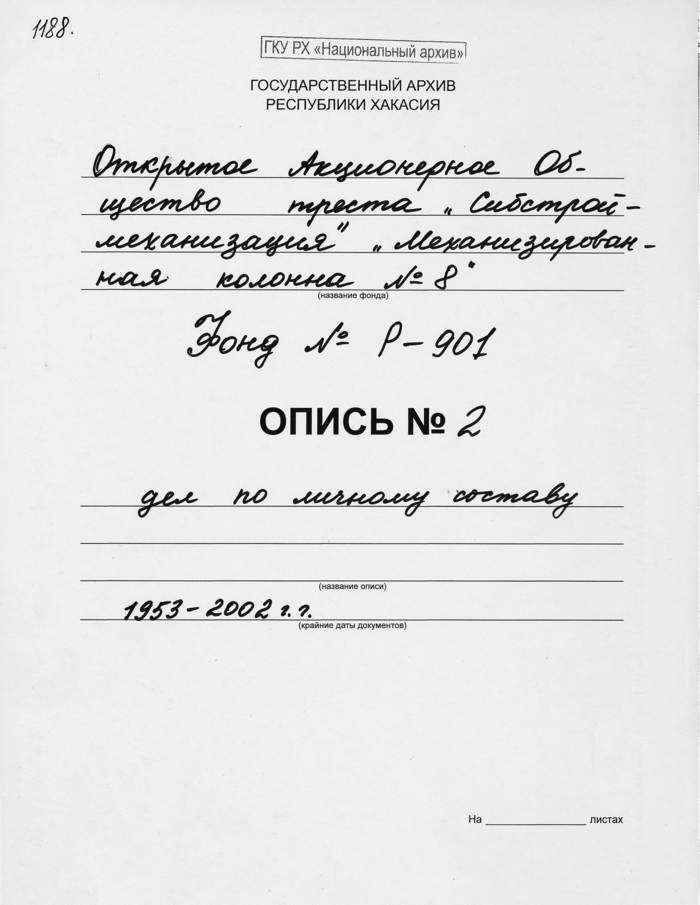 1188.
ГКУ РХ «Национальный архив»
ГОСУДАРСТВЕННЫЙ АРХИВ
РЕСПУБЛИКИ ХАКАСИЯ
Открытое Акционерное Об-
щество треста „Сибстрой-
механизация" „Механизирован-
ная колонна № 8"
(название фонда)
Фонд № Р-901
ОПИСЬ № 2
дел по личному составу
(название описи)
1953-2002 г.г.
(крайние даты документов)
На ________________ листах